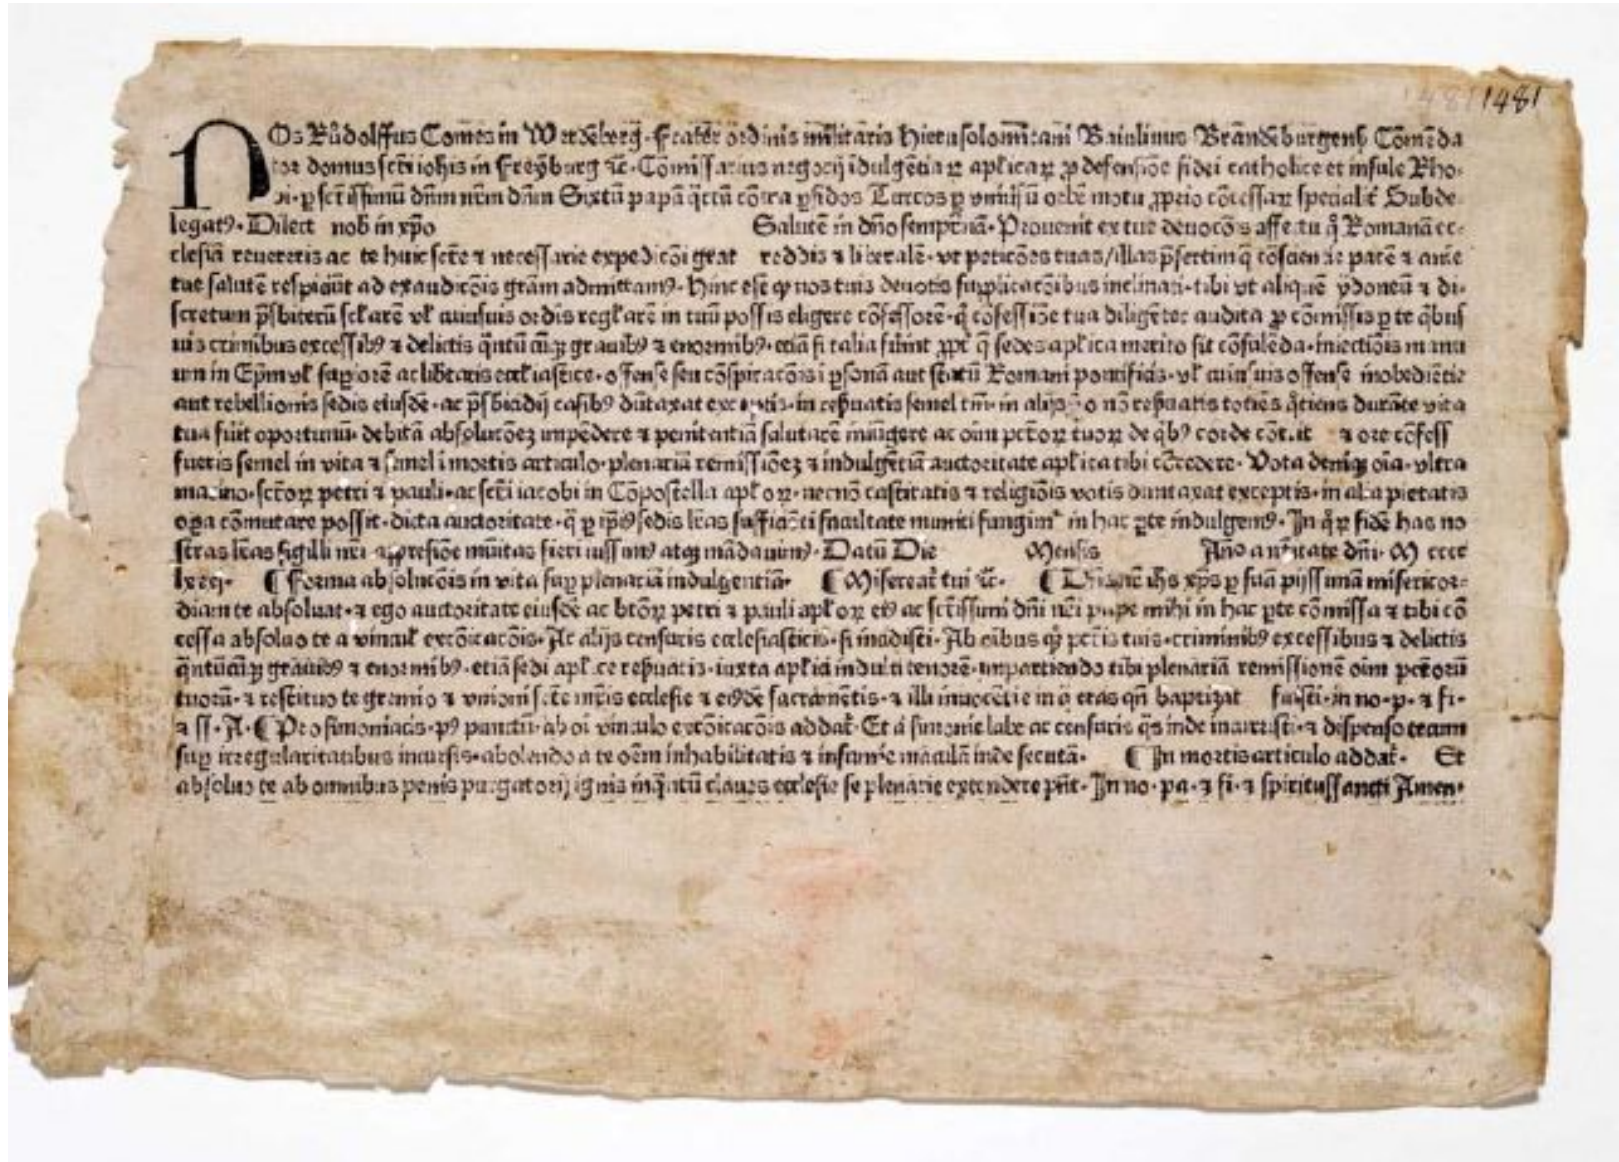 1481
NOs Růdolffus Comes in Werdēberg. Frater ordinis militaris Hierusolomitani Baiulinus Brandēburgenß Cōmēda
tor domus scti iohis in Freyburg ⁊c. Cōmissarius negocij īdulgētiaꝝ aplicaꝝ ꝓ defensiōe fidei catholice et insule Rho-
di. ꝑ sctissimū dn̄m nr̄m dn̄m Sixtū papā q̄rtū cōtra ꝑfidos Turcos ꝑ vniūsū orbē motu ꝓprio cōcessaꝝ Subde-
legatꝰ. Dilect nob in xp̄o Salutē in dn̄o sempit̄nā. Prouenit ex tue deuocōis affectu ꝙ Romanā ec-
clesiā reuereris ac te huic scte ⁊ necessarie expedicōi grat reddis ⁊ liberalē. vt peticōes tuas/illas p̄sertim q̄ cōsciencie pacē ⁊ aīe
tue salutē respiciūt ad exaudicōis gr̄am admittamꝰ. Hinc est ꝙ nos tuis deuotis supplicacōibus inclinati. tibi vt aliquē ydoneū ⁊ di-
scretum p̄sbiterū sclarē vl cuiusuis ordis reglarē in tuū possis eligere cōfessorē. q̄ cōfessiōe tua diligēter audita ꝓ cōmissis ꝑ te q̄bus
uis criminibus excessibꝰ ⁊ delictis q̄ntūcūqꝫ grauibꝰ ⁊ enormibꝰ. etiā si talia fūint ꝓpt̄ q̄ sedes aplica merito sit cōsulēda. iniectiōis manu
um in Ep̄m vl supiorē ac libtatis eccliastice. offense seu cōspiracōis ī ꝑsonā aut statū Romani pontificis. vl cuiusuis offense inobediētie
aut rebellionis sedis eiusdē. ac p̄sbiadij casibꝰ dūtaxat exceptis. in resuatis semel tm̄. in alijs ꝟo nō resuatis totiēs q̄tiens durāte vita
tua fūit oportunū. debitā absolucōeꝫ impēdere ⁊ penitentiā salutarē iniūgere ac oīm pctoꝝ tuoꝝ de q̄bꝰ corde cōt.it ⁊ ore cōfess
fueris semel in vita ⁊ semel ī mortis articulo. plenariā remissiōeꝫ ⁊ indulgētiā auctoritate aplica tibi cōcedere. Vota deniqꝫ oīa. vltra
marino. sctoꝝ petri ⁊ pauli. ac scti iacobi in Cōpostella aploꝝ. necnō castitatis ⁊ religiōis votis duntaxat exceptis. in alia pietatis
oꝑa cōmutare possit. dicta auctoritate. q̄ ꝑ ip̄iꝰ sedis lr̄as sufficiēti facultate muniti fungimʳ in hac ꝑte indulgemꝰ. In qꝝ fidē has no
stras lr̄as sigilli nr̄i appresiōe mūitas fieri iussimꝰ atqꝫ mādauimꝰ. Datū Die Mensis Año a natītate dn̄i. M cccc
lxxxj. ¶ Forma absolucōis in vita sup plenariā indulgentiā. ¶ Misereat̄ tui ⁊c. ¶ Dn̄s nr̄ ih̄s xp̄s ꝑ suā pijssimā misericor-
diam te absoluat. ⁊ ego auctoritate eiusdē ac btōꝝ petri ⁊ pauli aploꝝ eiꝰ ac sctissimi dn̄i nr̄i pape mihi in hac ꝑte cōmissa ⁊ tibi cō
cessa absoluo te a vincul excōicacōis. Ac alijs censuris ecclesiasticis. si incidisti. Ab oībus qꝫ pctis tuis. criminibꝰ excessibus ⁊ delictis
q̄ntūcūqꝫ grauibꝰ ⁊ enormibꝰ. etiā sedi aplce resuatis. iuxta aplici indulti tenorē. impartiendo tibi plenariā remissionē oīm pctorū
tuorū. ⁊ restituo te gremio ⁊ vnioni scte mr̄is ecclesie ⁊ eiꝰdē sacramētis. ⁊ illi inocētie in q̄ eras qn̄ baptizat fuisti. in no. p. ⁊ fi.
⁊ ss. A. ¶ Pro simoniacis. pꝰ punctū. ab oī vinculo excōicacōis addat̄. Et a simonie labe ac censuris q̄s inde incurristi. ⁊ dispenso tecum
sup irregularitatibus incursis. abolendo a te oēm inhabilitatis ⁊ infamie maculā inde secutā. ¶ In mortis articulo addat̄. Et
absoluo te ab omnibus penis purgatorij ignis inq̄ntū claues ecclesie se plenarie extendere pn̄t. In no. pa. ⁊ fi. ⁊ spiritussancti Amen.